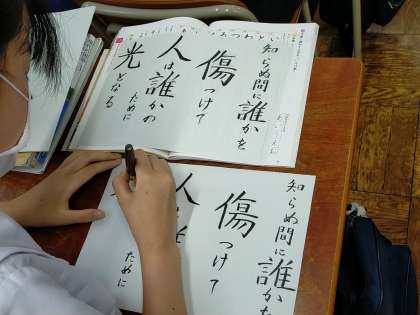 知らぬ間に誰かを
傷つけて
人は誰かの
ために
光となる
知らぬ間に誰かを
傷つけて
人は
ために